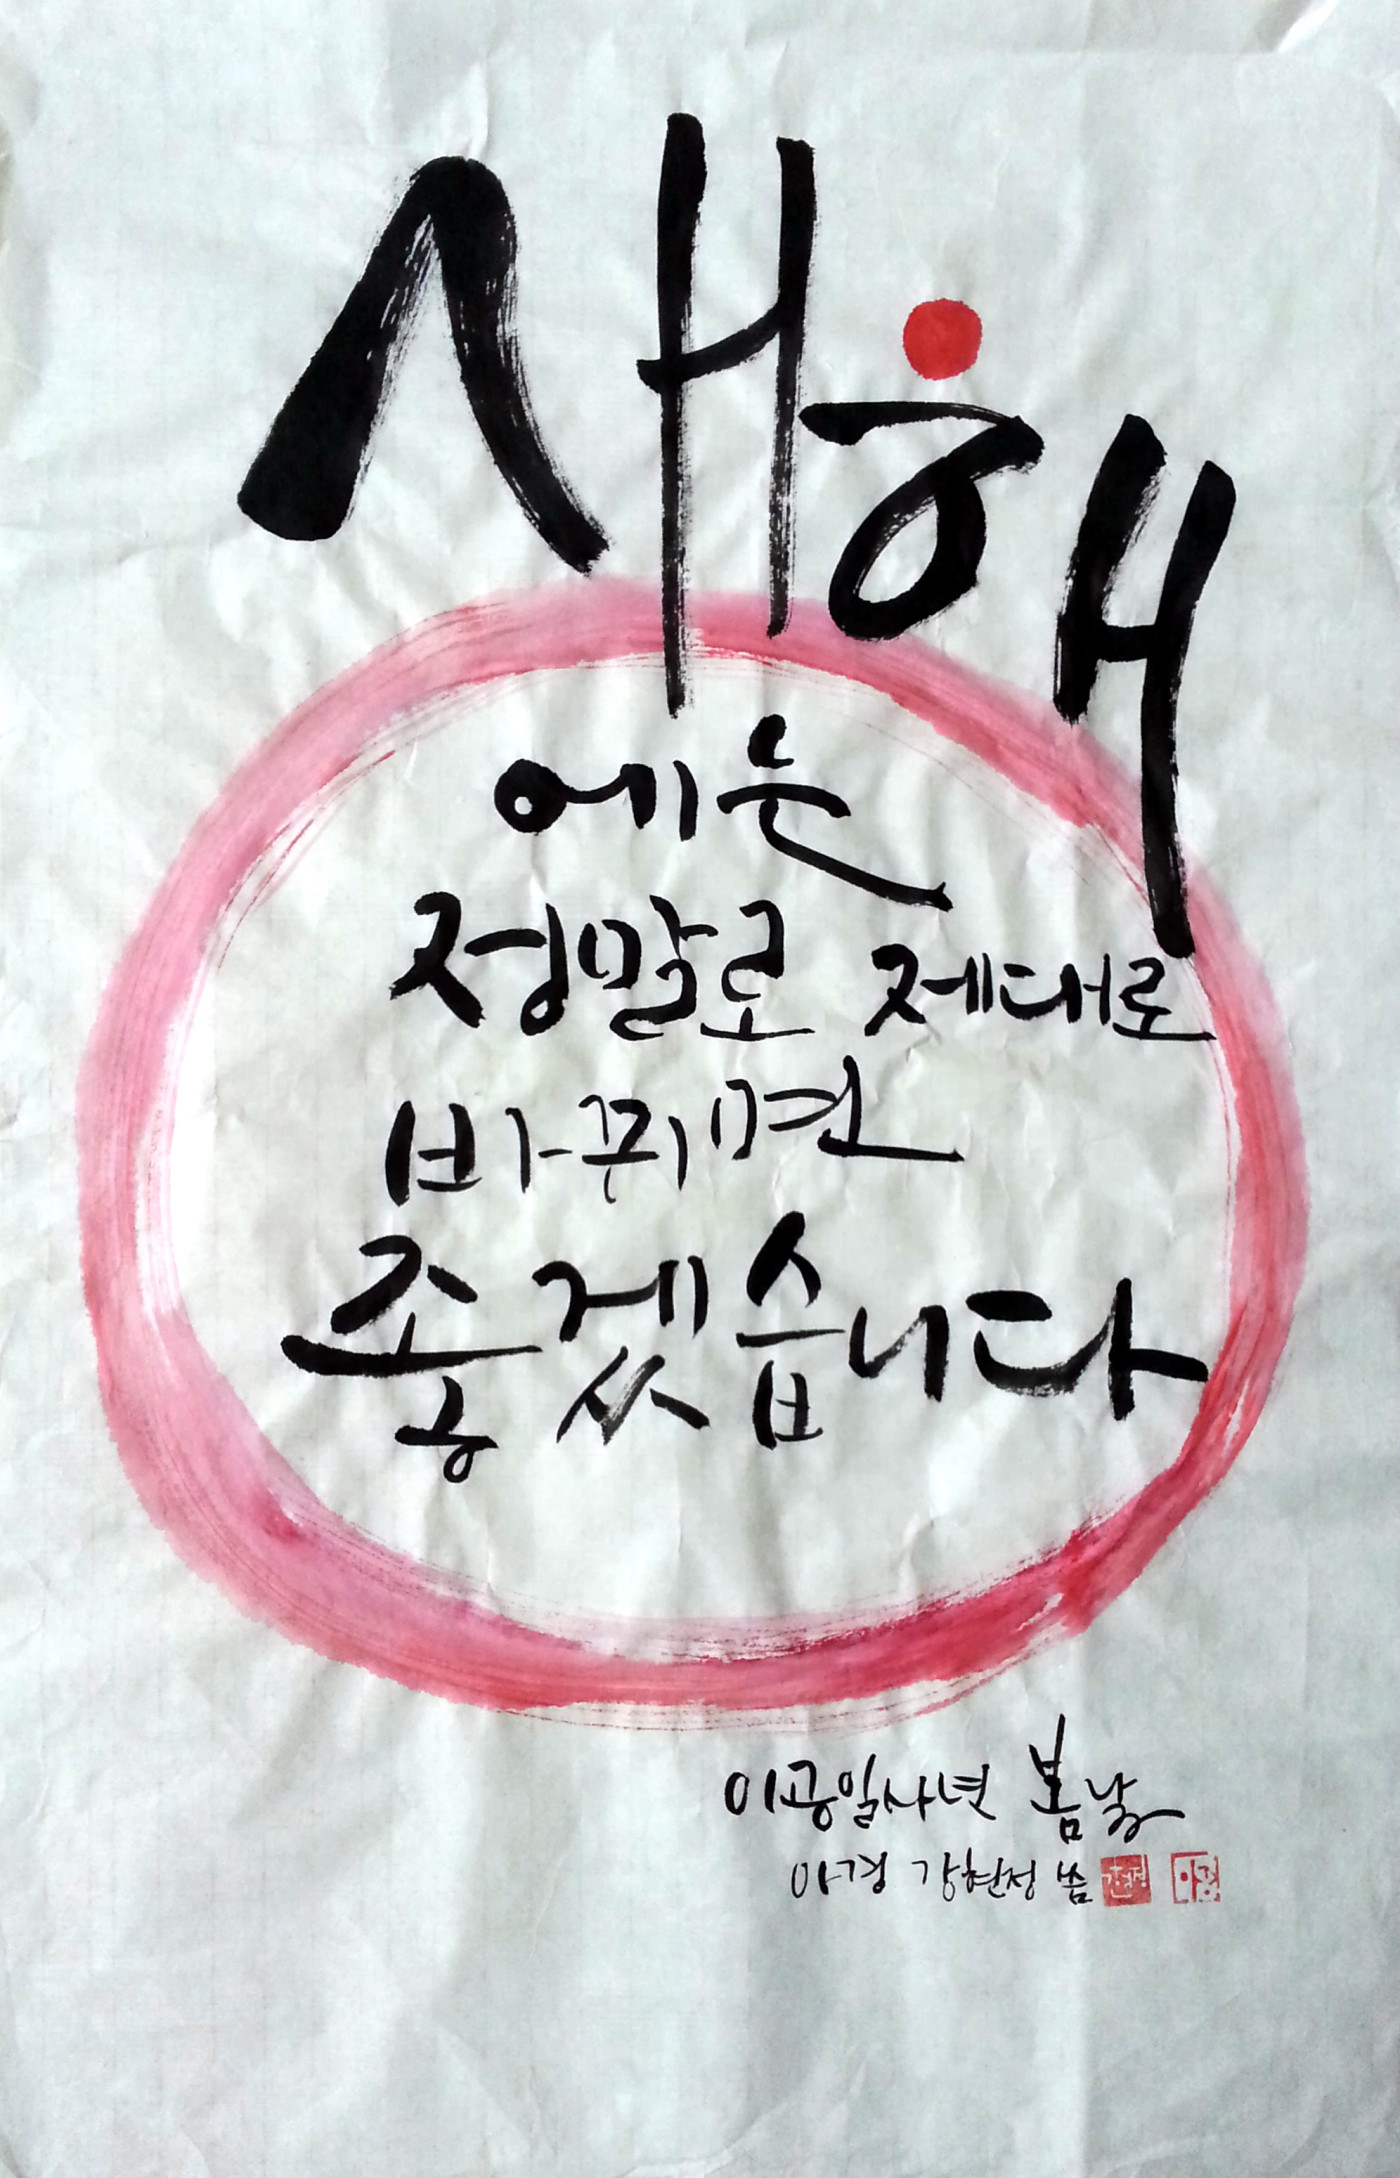 새해
에는
정말로 제대로
바뀌면
좋겠습니다
이공일사년 봄날
아경 강현정 씀